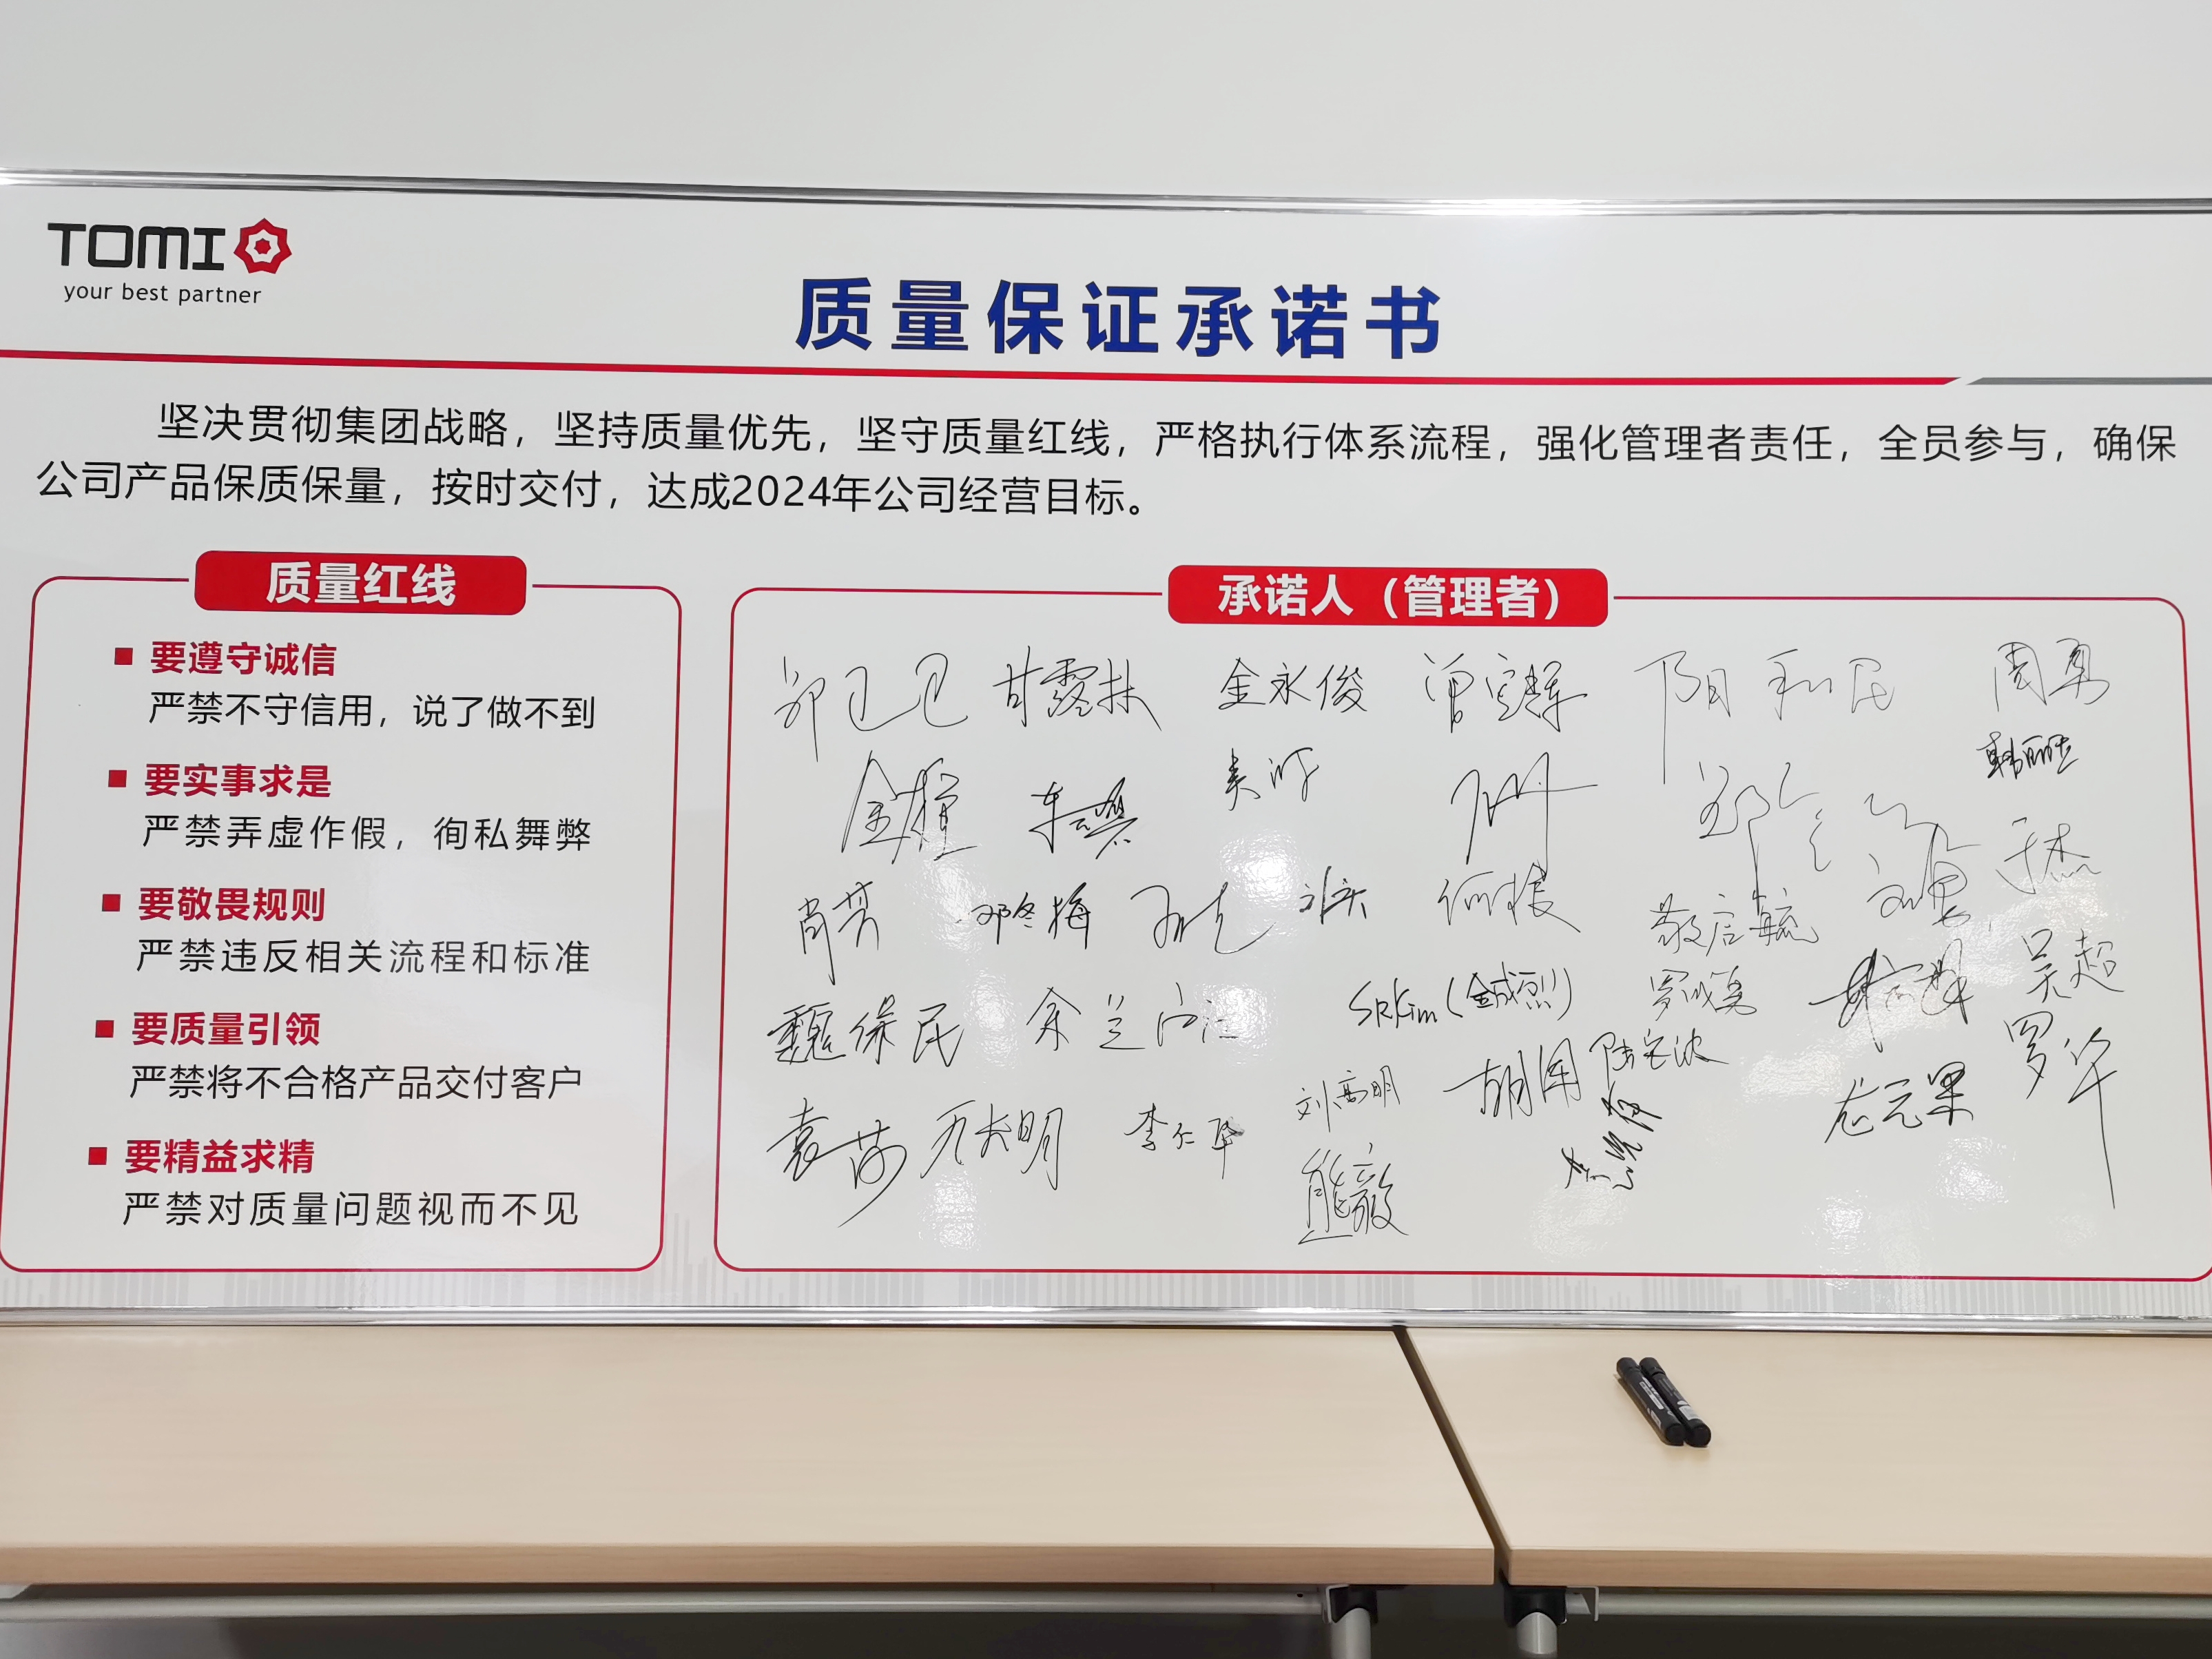 TOMI
your best partner
质量保证承诺书
坚决贯彻集团战略，坚持质量优先，坚守质量红线，严格执行体系流程，强化管理者责任，全员参与，确保
公司产品保质保量，按时交付，达成2024年公司经营目标。
质量红线
■ 要遵守诚信
严禁不守信用，说了做不到
■ 要实事求是
严禁弄虚作假，徇私舞弊
■ 要敬畏规则
严禁违反相关流程和标准
■ 要质量引领
严禁将不合格产品交付客户
■ 要精益求精
严禁对质量问题视而不见
承诺人（管理者）
甘露林 金永俊 阳和民 周勇
肖芳 邓冬梅 敬启毓 于杰
魏保民 SRKim(金成烈) 吴超
胡军 罗华
袁莎 李仁华 刘高明 龙元果
熊毅